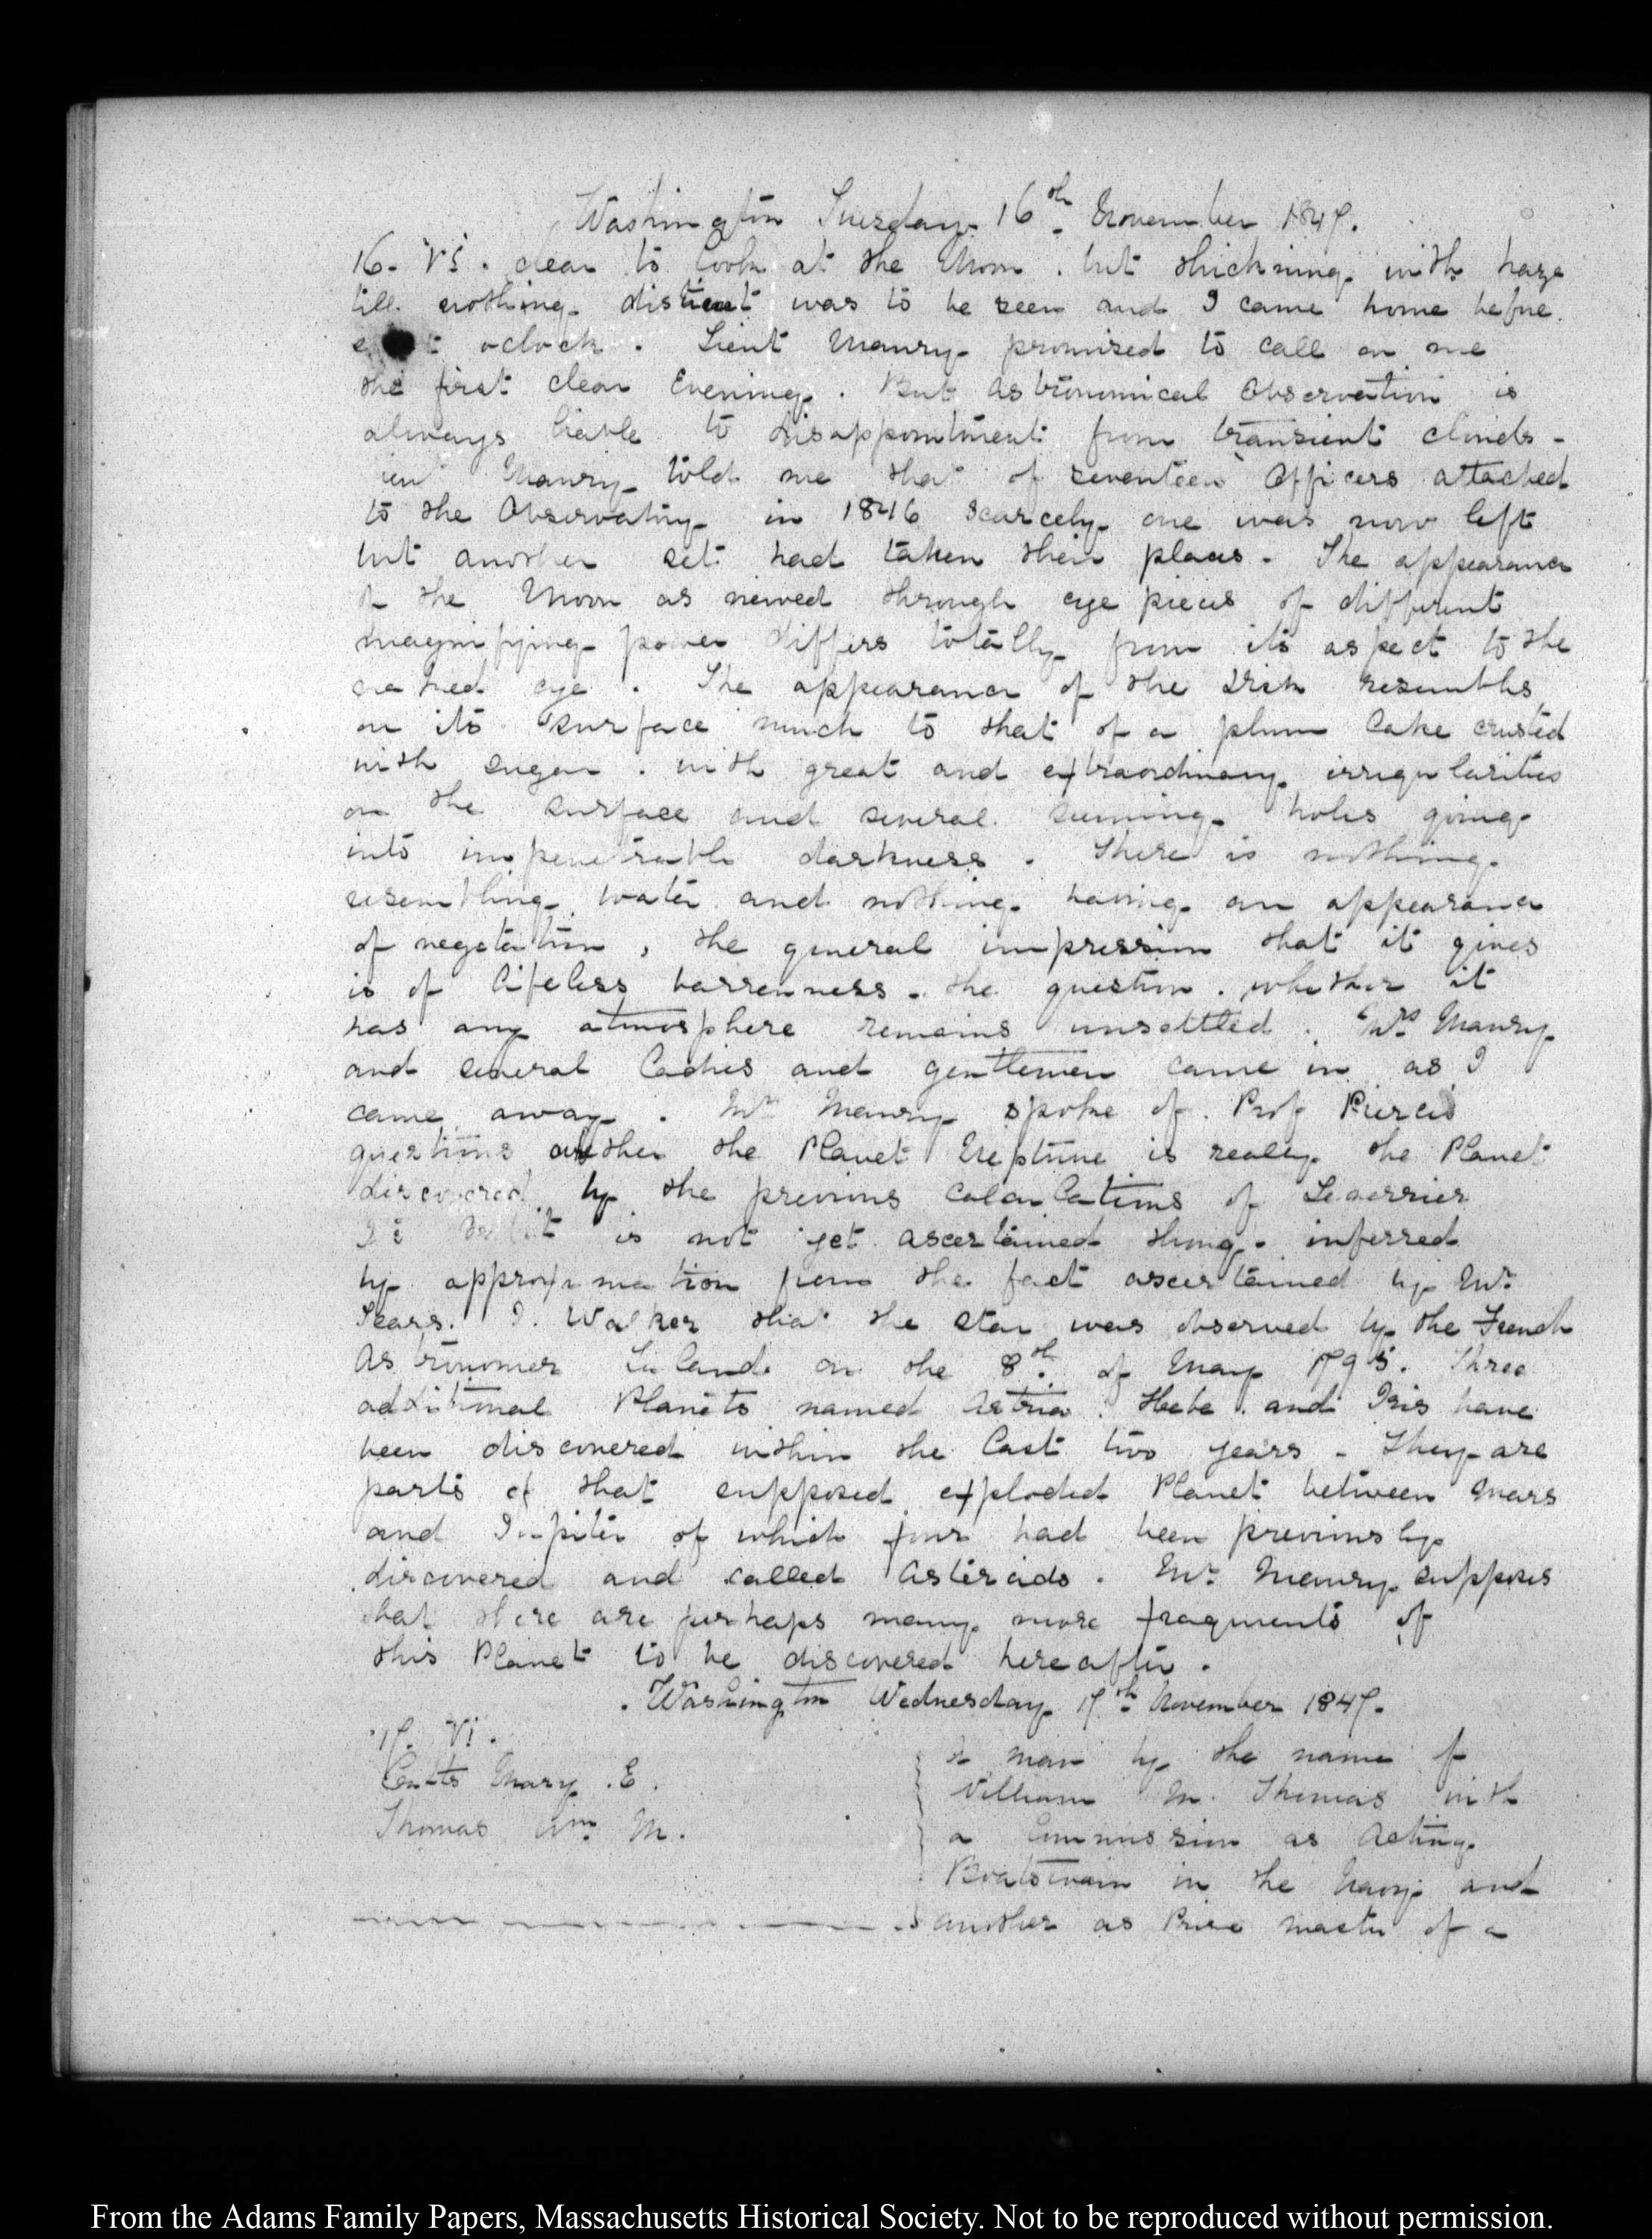 Washington Tuesday 16th November 1847.
16. VI. clear to look at the Moon. but thickning with haze
till nothing distinct was to be seen and I came home before
oclock. Lieut Maury promised to call on me
the first clear Evening. But astronomical Observation is
always liable to disappointment from transient clouds-
Maury told me that of seventeen Officers attached
to the Observatory in 1846 scarcely one was now left
but another set had taken their places. The appearance
of the Moon as viewed through eye pieces of different
magnifying power differs totally from its aspect to the
naked eye. The appearance of the disk resembles
on its surface much to that of a plum Cake crusted
with sugar. with great and extraordinary irregularities
on the surface and several seeming holes going
into impenetrable darkness. There is nothing
resembling water and nothing having an appearance
of vegetation, the general impression that it gives
is of lifeless barrenness. the question. whether it
has any atmosphere remains unsettled. Mrs Maury
and several Ladies and gentlemen came in as I
came away. Mr Maury spoke of Prof Pierces
questions whether the Planet Neptune is really the Planet
discovered by the previous Calculations of Leverrier
Its Orbit is not yet ascertained though inferred
by approximation from the fact ascertained by Mr
Sears. I. Walker that the star was observed by the French
Astronomer Laland on the 8th of May 1795. Three
additional Planets named Astria. Hebe. and Iris have
been discovered within the last two years - They are
parts of that supposed exploded Planet between Mars
and Jupiter of which four had been previously
discovered and called Asteroids. Mr Maury supposes
that there are perhaps many more fragments of
this Planet to be discovered hereafter.
Washington Wednesday 17th November 1847.
17. VI.
Cutts Mary. E.
Thomas Wm M.
A man by the name of
William M. Thomas with
a Commission as Acting
Boatswain in the Navy and
another as Prize master of a
From the Adams Family Papers, Massachusetts Historical Society. Not to be reproduced without permission.